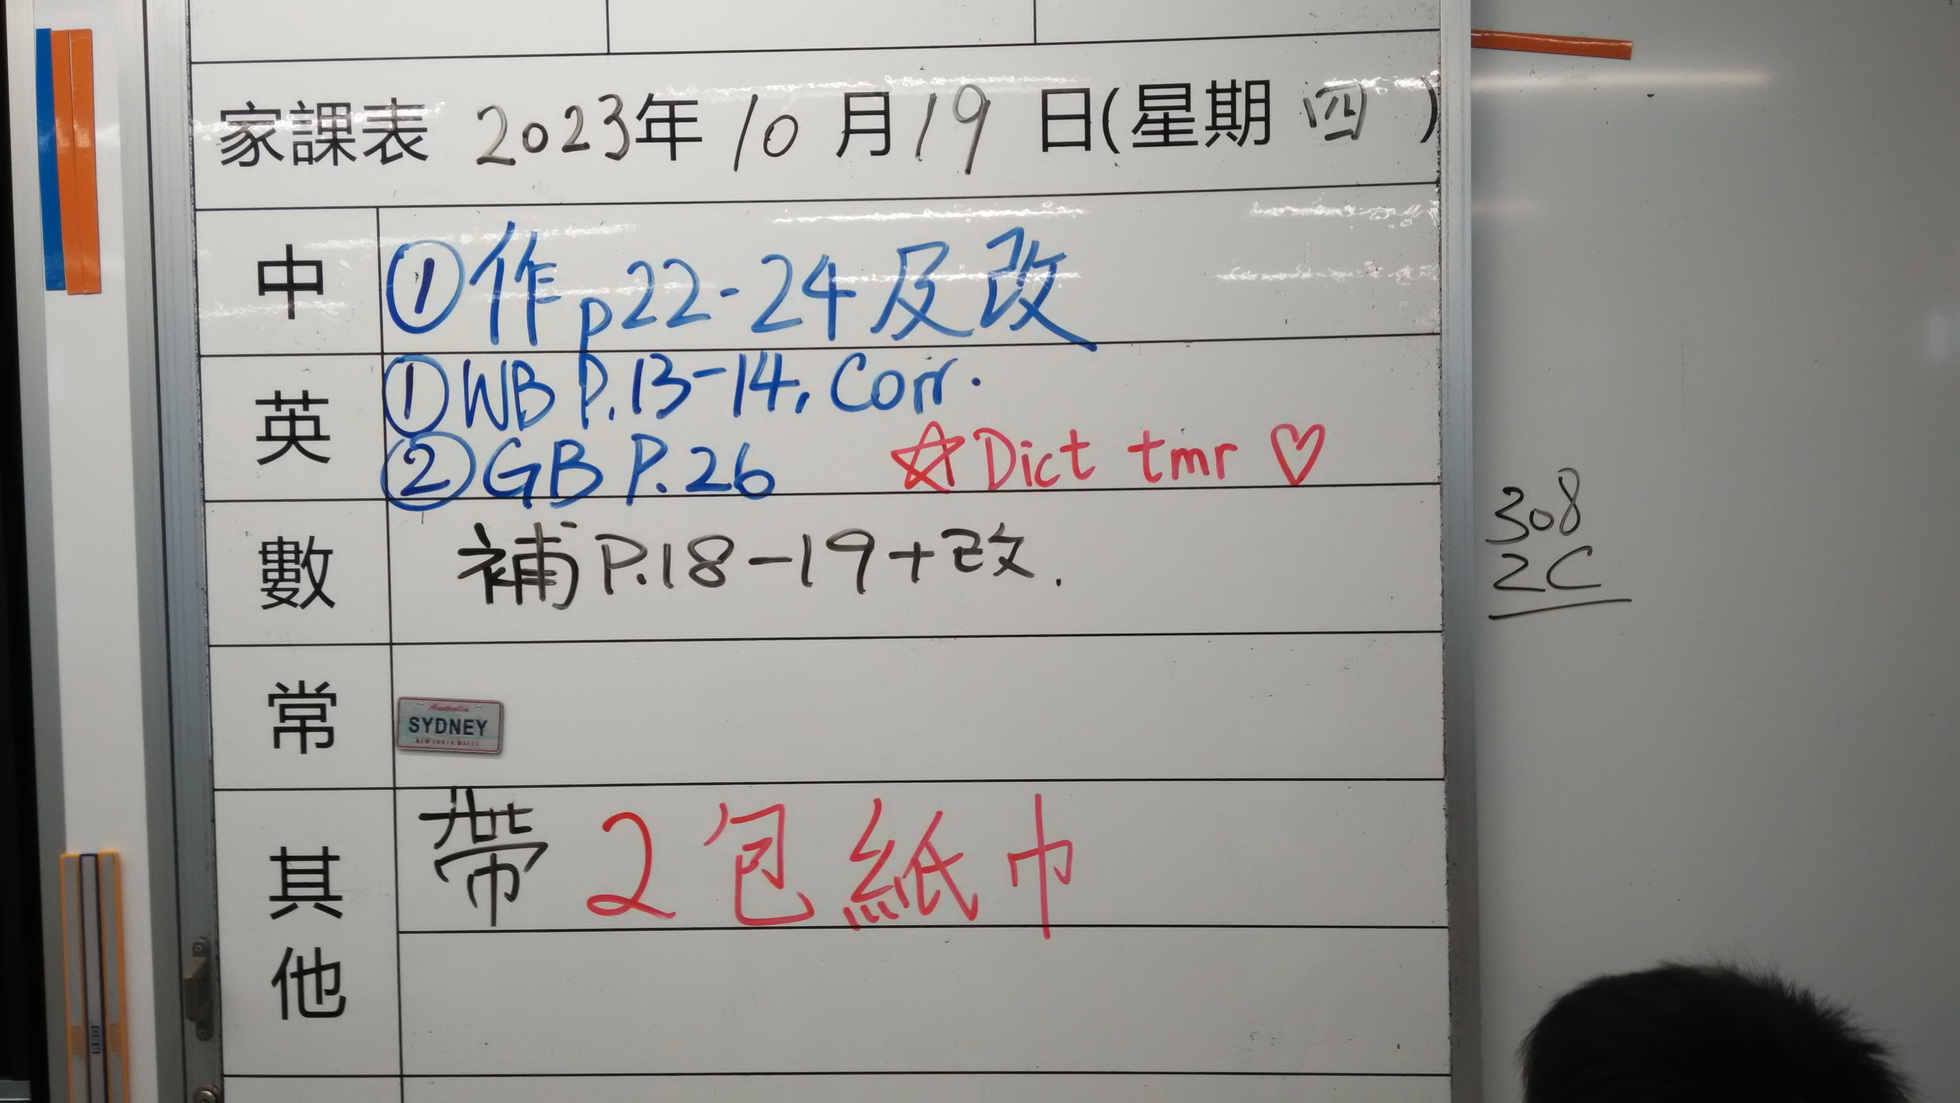 家課表 2023年 10 月 19 日(星期 四 )
中 ①作 p22-24 及改
英 ①WB P.13-14, Corr.
②GB P.26 ☆Dict tmr ♡
數 補 P.18-19+改.
常
Australia
SYDNEY
NEW SOUTH WALES
其他 帶 2 包紙巾
308
2C